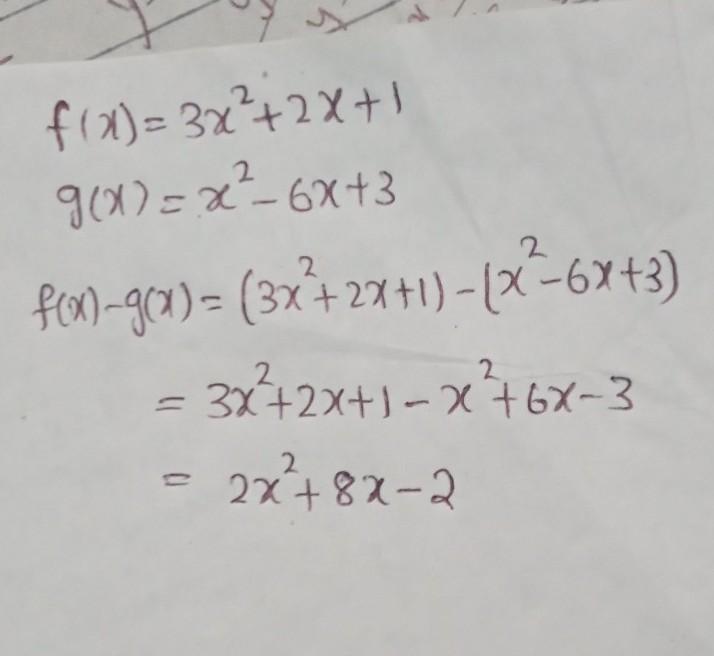 f(x) = 3x² + 2x + 1
g(x) = x² - 6x + 3
f(x) - g(x) = (3x² + 2x + 1) - (x² - 6x + 3)
= 3x² + 2x + 1 - x² + 6x - 3
= 2x² + 8x - 2